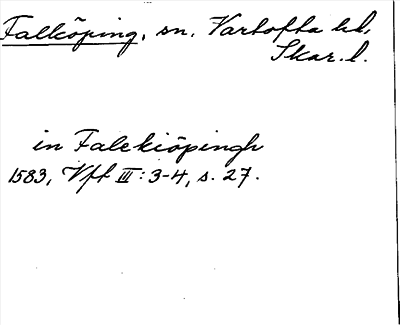 Falköping, sn. Vartofta hd,
Skar. l.
in Falekiöpingh
1583, Vff III: 3-4, s. 27.